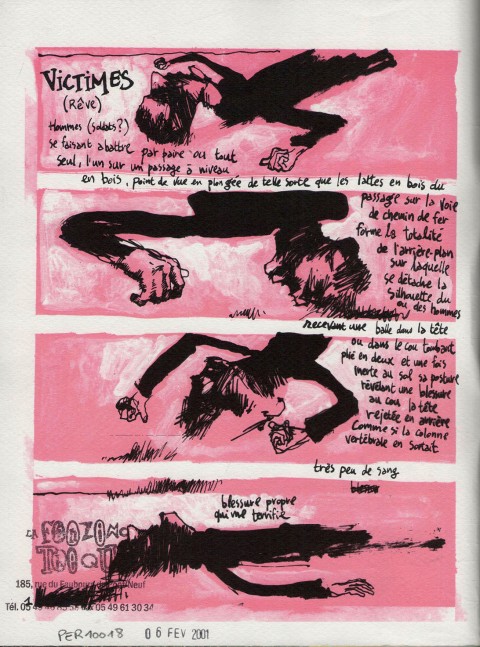 VICTIMES
(Rêve)
Hommes (soldats?)
se faisant abattre
par paire ou tout
seul, l'un sur un passage à niveau
en bois, point de vue en plongée de telle sorte que les lattes en bois du
passage sur la voie
de chemin de fer
forme la totalité
de l'arrière-plan
sur laquelle
se détache la
silhouette du
ou des hommes
recevant une balle dans la tête
ou dans le cou tombant
plié en deux et une fois
inerte au sol sa posture
révélant une blessure
au cou la tête
rejetée en arrière
comme si la colonne
vertébrale en sortait
très peu de sang
blessure propre
qui me terrifie
185, rue du Faubourg du Pont Neuf
Tél. 05 49 fax 05 49 61 30 34
PER10018 06 FEV 2001